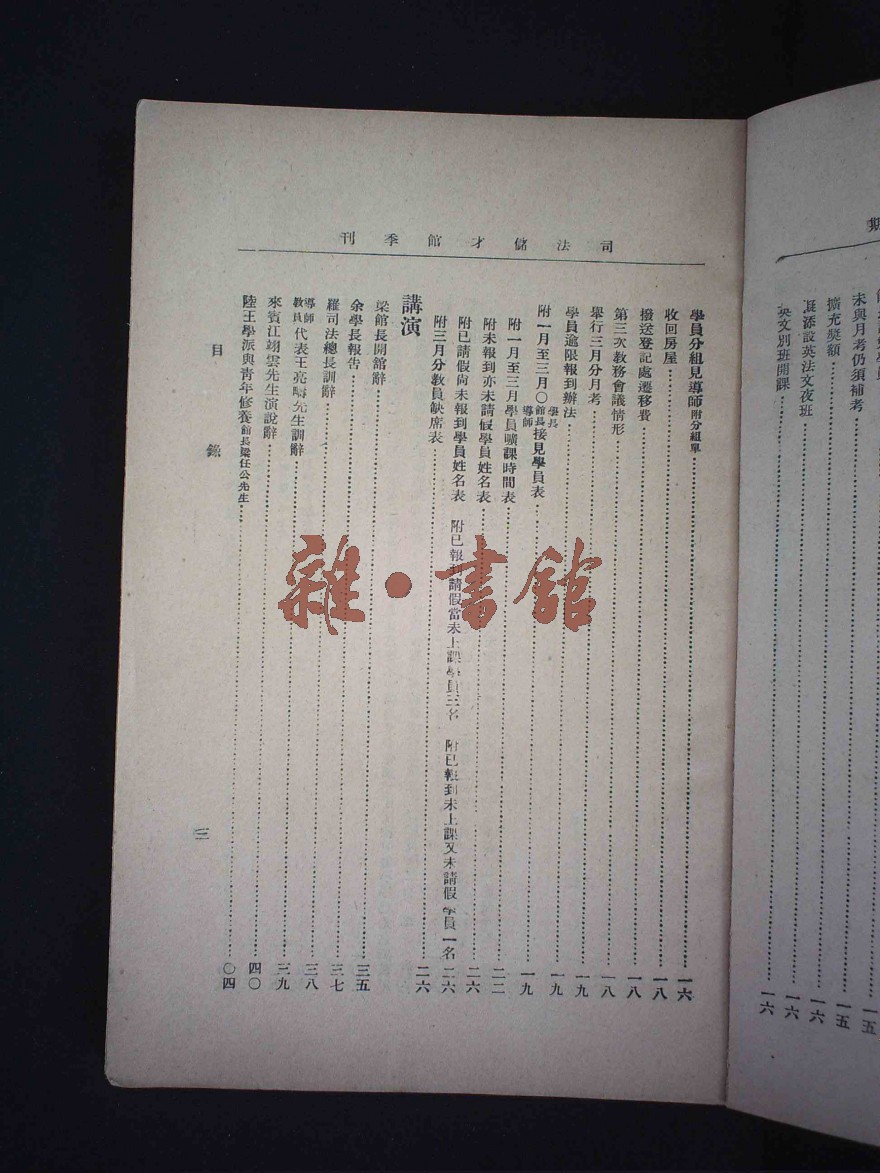 司法儲才館季刊
學員分組見導師附分組單……一六
收回房屋……一八
撥送登記處遷移費……一八
第三次教務會議情形……一八
舉行三月分月考……一九
學員逾限報到辦法……一九
附一月至三月〇學長館長導師接見學員表……一九
附一月至三月學員曠課時間表……二二
附未報到亦未請假學員姓名表……二六
附已請假尚未報到學員姓名表 附已報到請假當未上課學員三名 附已報到未上課又未請假學員一名 二六
附三月分教員缺席表……二六
講演
梁館長開館辭……三五
余學長報告……三七
羅司法總長訓辭……三八
導師教員代表王亮疇先生訓辭……三九
來賓江翊雲先生演說辭……四〇
陸王學派與青年修養館長梁任公先生……〇四
目錄
三
期
未與月考仍須補考……一五
擴充獎額……一五
添設英法文夜班……一六
英文別班開課……一六
一六
雜·書館